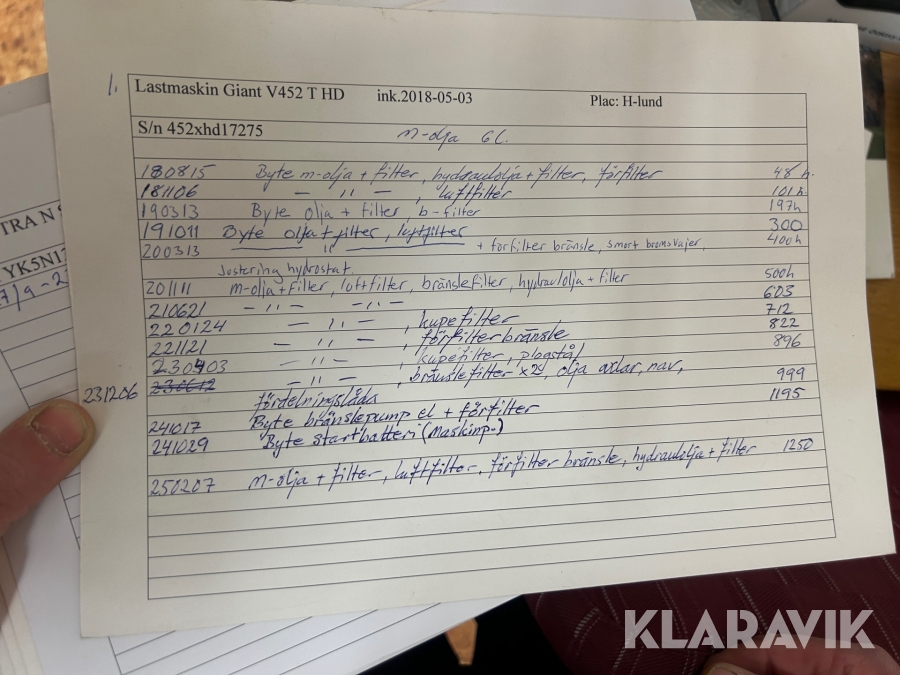 1. Lastmaskin Giant V452 T HD ink.2018-05-03 Plac: H-lund
S/n 452xhd17275 m-olja 6L.
180815 Byte m-olja + filter, hydraulolja + filter, förfilter 48 h.
181106 — 〃 — , luftfilter 101 h
190313 Byte olja + filter, b-filter 197h
191011 Byte olja + filter, luftfilter 300
200313 — 〃 — + förfilter bränsle, smort bromsvajer, 400h
Justering hydrostat.
201111 m-olja + filter, luftfilter, bränslefilter, hydraulolja + filter 500h
210621 — 〃 — — 〃 — 603
220124 — 〃 — , kupefilter, 712
221121 — 〃 — , förfilter bränsle 822
230403 — 〃 — , kupefilter, plogstål 896
231206 230612 — 〃 — , bränslefilter x2st, olja axlar, nav,
fördelningslåda 999
241017 Byte bränslepump el + förfilter 1195
241029 Byte startbatteri (Maskinp.)
250207 m-olja + filter, luftfilter, förfilter bränsle, hydraulolja + filter 1250
TRA N
YK5N1
7/9-2
KLARAVIK